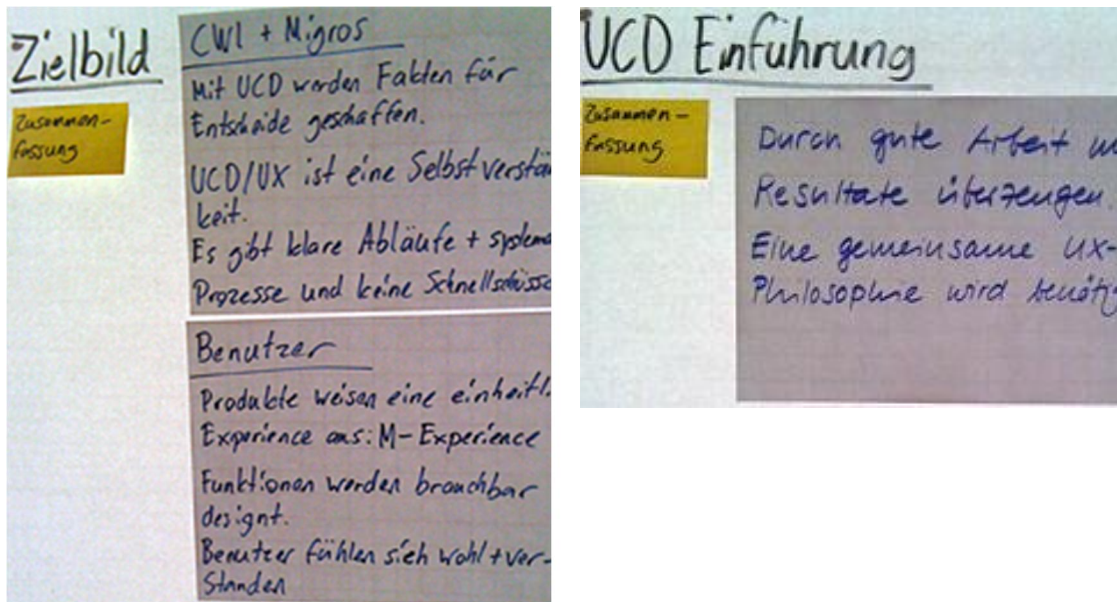 Zielbild
Zusammen-
fassung
CWI + Migros
Mit UCD werden Fakten für
Entscheide geschaffen.
UCD/UX ist eine Selbstverstän
keit.
Es gibt klare Abläufe + systema
Prozesse und keine Schnellschüsse
Benutzer
Produkte weisen eine einheitl.
Experience aus: M-Experience
Funktionen werden brauchbar
designt.
Benutzer fühlen sich wohl + ver-
standen
UCD Einführung
Zusammen-
fassung
Durch gute Arbeit un
Resultate überzeugen.
Eine gemeinsame UX-
Philosophie wird benötig